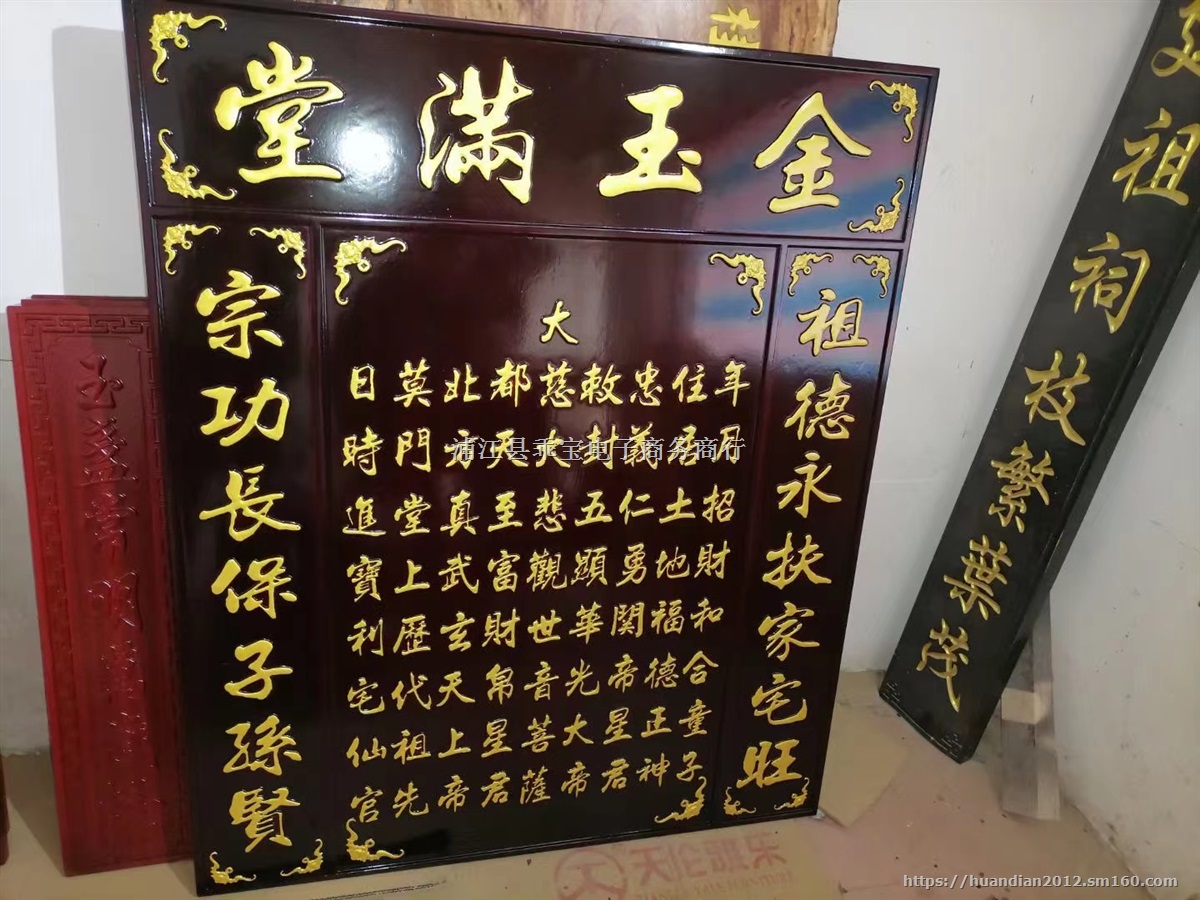 金玉满堂
祖德永扶家宅旺
年月招財和合童子
住居土地福德正神
忠義仁勇関帝星君
敕封五顯華光大帝
大慈大悲觀世音菩薩
都天至富財帛星君
北方真武玄天上帝
莫門堂上歷代祖先
日時進寶利宅仙官
宗功長保子孫賢
祖祠枝繁葉茂
浦江县乖宝电子商务商行
https://huandian2012.sm160.com